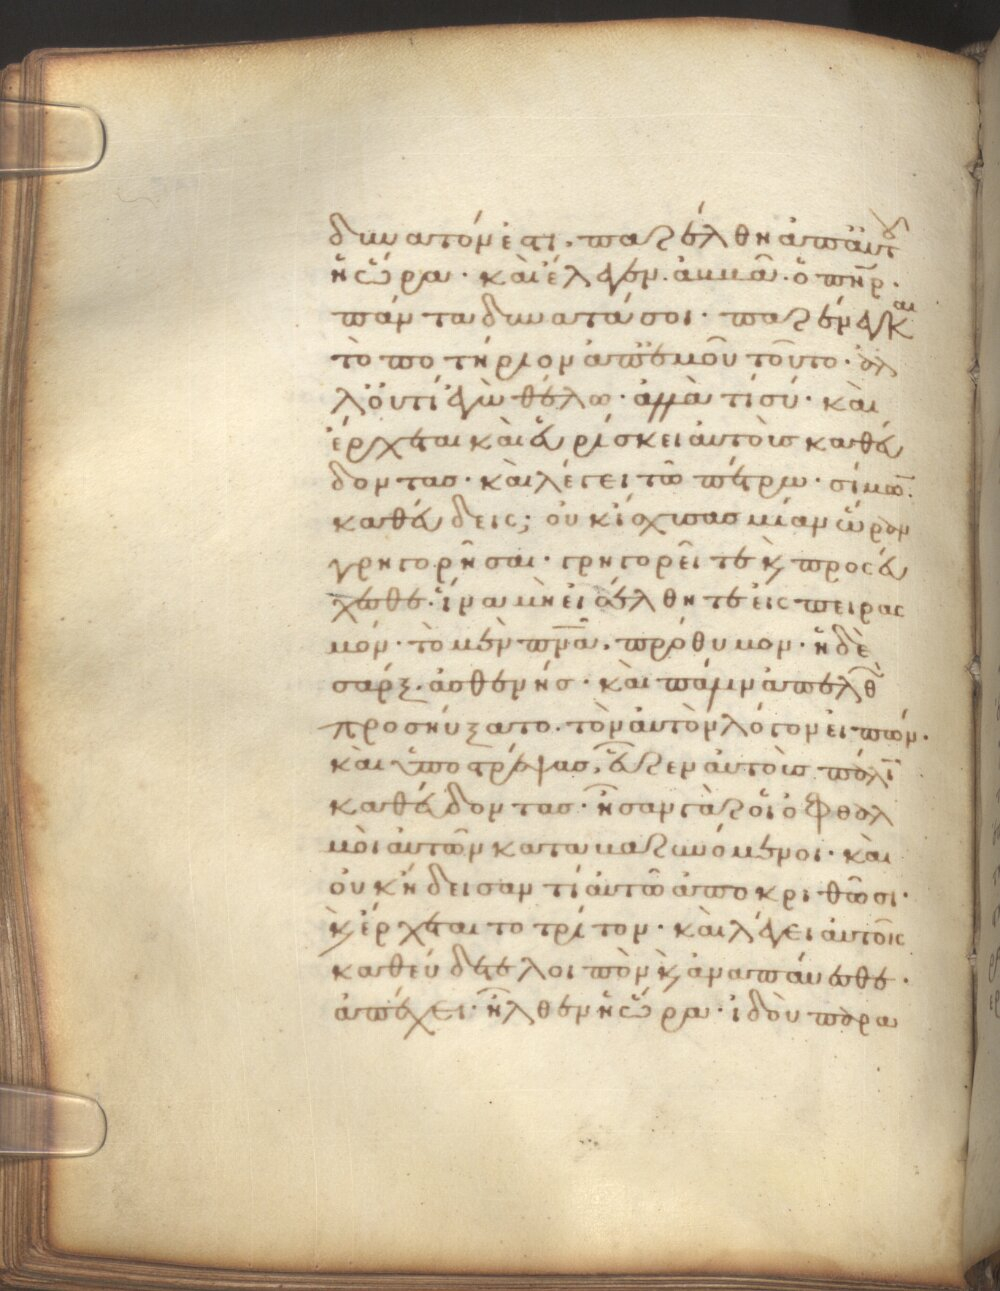 δυνατόν ἐστι, παρέλθη ἀπ' αὐτοῦ
ἡ ὥρα· καὶ ἔλεγεν· ἀββᾶ· ὁ π̅η̅ρ·
πάντα δυνατά σοι· παρένεγκαι
τὸ ποτήριον ἀπ' ἐμοῦ τοῦτο· ἀλ
λ' οὐ τί ἐγὼ θέλω· ἀλλὰ τί σύ· καὶ
ἔρχεται καὶ εὑρίσκει αὐτοὺς καθεύ
δοντας· καὶ λέγει τῶ πέτρω· σίμω̅·
καθεύδεις; οὐκ ἴσχυσας μίαν ὥραν
γρηγορῆσαι· γρηγορεῖτε κ̀ προσεύ
χεσθε· ἵνα μὴ εἰσέλθητε εἰς πειρασ
μόν· τὸ μὲν π̅ν̅α̅, πρόθυμον· ἡ δὲ
σάρξ· ἀσθενής· καὶ πάλιν ἀπελθ̅
προσηύξατο· τὸν αὐτὸν λόγον εἰπών·
καὶ ὑποστρέψας, εὗρεν αὐτοὺς πάλι̅
καθεύδοντας· ἦσαν γὰρ οἱ ὀφθαλ
μοὶ αὐτῶν καταβαρυνόμενοι· καὶ
οὐκ ἤδεισαν τί αὐτῶ ἀποκριθῶσι·
κ̀ ἔρχεται το τρίτον· καὶ λέγει αὐτοῖς
καθεύδετε λοιπὸν κ̀ ἀναπαύεσθε·
ἀπέχει· ἦλθεν ἡ ὥρα· ἰδοὺ παρα